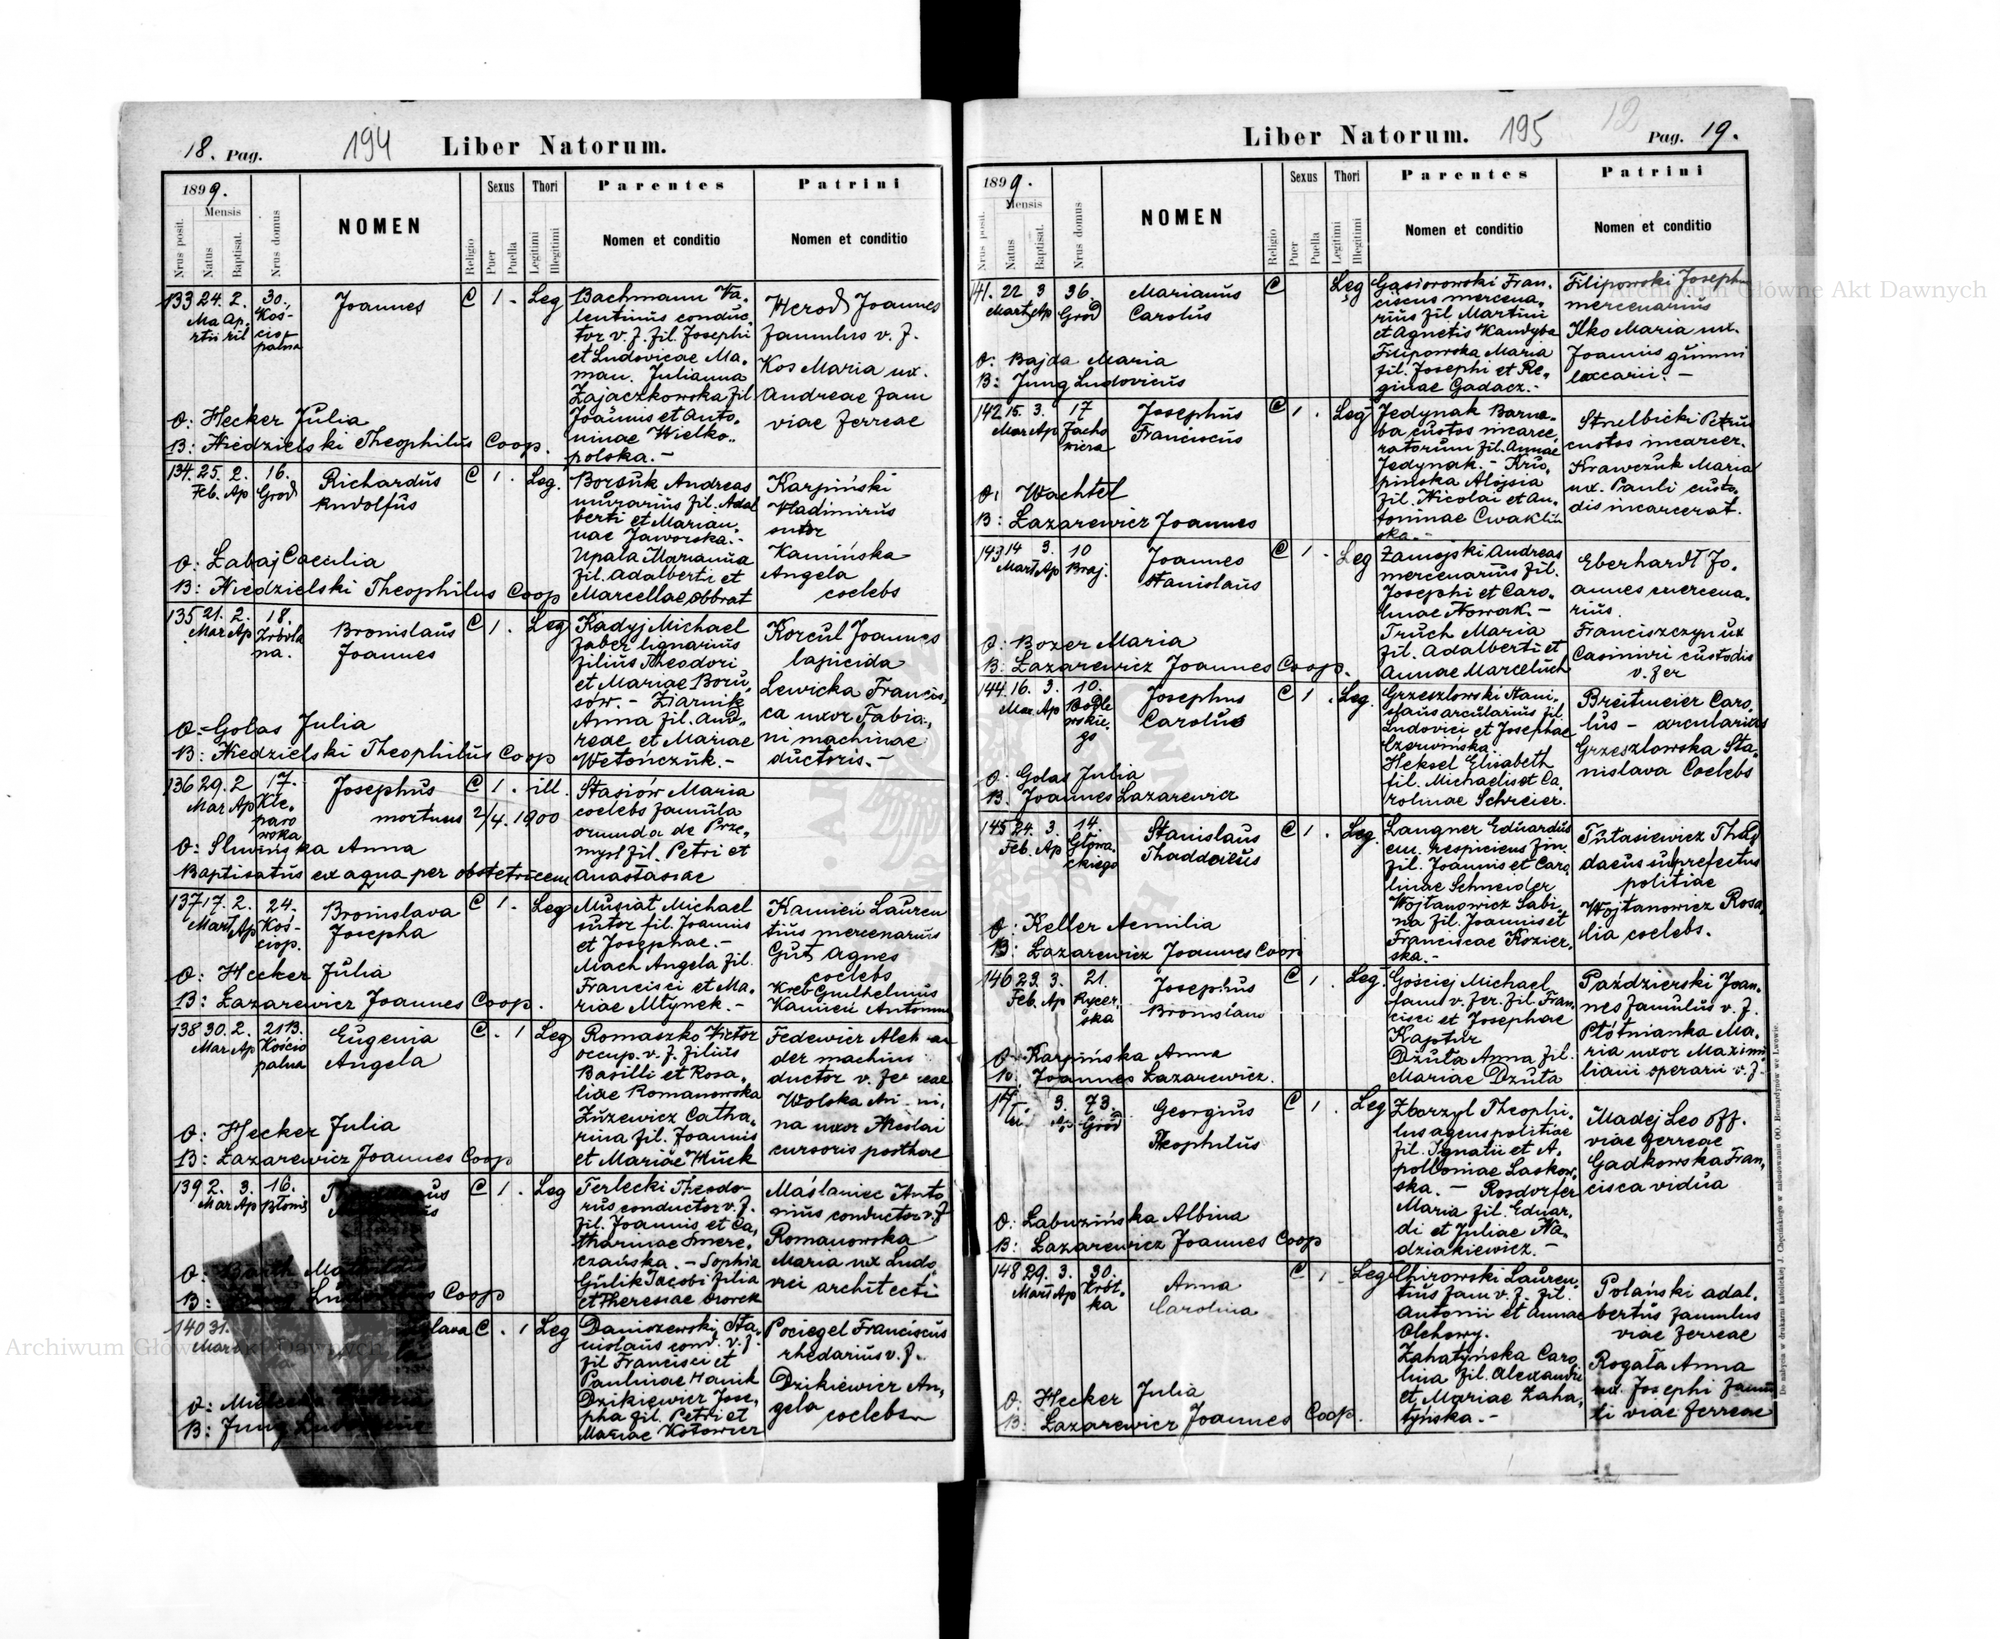 18. Pag. 194 Liber Natorum.
1899.
Mensis
Nrus posit.
Natus
Baptisat.
Nrus domus
NOMEN
Religio
Sexus
Puer
Puella
Thori
Legitimi
Illegitimi
Parentes
Nomen et conditio
Patrini
Nomen et conditio
133 24. 2. 30. Joannes C 1 - Leg
Martii April Kościopalna
Bachmann Va-
lentinus conduc-
tor v. f. fil. Josephi
et Ludovicae Ma-
man. Julianna
Zajaczkowska fil
Joannis et Anto-
ninae Wielko-
polska.-
Herod Joannes
famulus v. f.
Kos Maria ux.
Andreae fam
viae ferreae
O: Hecker Julia
B: Niedzielski Theophilus Coop.
134. 25. 2. 16. Richardus C 1 . Leg.
Feb. Ap Grod Rudolfus
Borsuk Andreas
murarius fil. Adal
berti et Marian-
nae Jaworska.-
Upala Marianna
fil. Adalberti et
Marcellae Obbrat
Karpiński
Vladimirus
sutor
Kamińska
Angela
coelebs
O: Labaj Caecilia
B: Niedzielski Theophilus Coop
135 21. 2. 18. Bronislaus C 1 . Leg
Mar Ap Zrodla
na. Joannes
Kadyj Michael
faber lignarius
filius Theodori
et Mariae Boru-
sow.- Ziarnik
Anna fil. And-
reae et Mariae
Wetończuk.-
Korcul Joannes
lapicida
Lewicka Francis-
ca uxor Fabia-
ni machinae
ductoris.-
O: Golas Julia
B: Niedzielski Theophilus Coop
136 29. 2 17. Josephus C 1. - ill.
Mar Ap Kle-
paro
wska mortuus 2/4. 1900
Stasiów Maria
coelebs famula
oriunda de Prze-
mysl fil. Petri et
Anastasiae
O: Sluvińska Anna
Baptisatus ex aqua per obstetricem
137 17. 2. 24. Bronislava C 1. Leg
Mart Ap Koś-
ciop. Josepha
Musiat Michael
sutor fil. Joannis
et Josephae.-
Mach Angela fil.
Francisci et Ma-
riae Młynek.-
Kamień Lauren
tius mercenarius
Gut Agnes
coelebs
Kreb Guilhelmus
Kamień Antonina
O: Hecker Julia
B: Lazarewicz Joannes Coop.
138 30. 2. 21B. Eugenia C. . 1 Leg
Mar Ap Kościo
palna Angela
Romaszko Victor
occup. v. f. filius
Basilli et Rosa-
liae Romanowska
Zuzewicz Catha-
rina fil. Joannis
et Mariae Huck
Fedewicz Alexan
der machin
ductor v. ferreae
Wolska
na uxor Nicolai
cursoris posthae
O: Hecker Julia
B: Lazarewicz Joannes Coop
139 2. 3. 16. C 1. Leg
Mar Ap Błonie
Terlecki Theodo-
rus conductor v. f.
fil. Joannis et Ca-
tharinae Smere-
czańska.- Sophia
Gulik Jacobi filia
et Theresiae Dworek
Maślaniec Anto-
nius conductor v. f
Romanowska
Maria ux Ludo-
vici architecti
O: Barth
B: Coop
140 31. C . 1 Leg
Mart
Daniszewski Sta-
nislaus cond. v. f.
fil Francisci et
Paulinae Hanik
Dzikiewicz Jose-
pha fil. Petri et
Mariae Kotowicz
Pociegel Franciscus
rhedarius v. f.
Dzikiewicz An-
gela coelebs
O:
B: Jung
Liber Natorum. 195 12 Pag. 19.
1899.
Mensis
Nrus posit.
Natus
Baptisat.
Nrus domus
NOMEN
Religio
Sexus
Puer
Puella
Thori
Legitimi
Illegitimi
Parentes
Nomen et conditio
Patrini
Nomen et conditio
141. 22 3 36. Marianus C Leg
Mart Ap Grod Carolus
Gąsiorowski Fran-
ciscus mercena-
rius fil Martini
et Agnetis Kandyba
Filipowska Maria
fil. Josephi et Re-
ginae Gadacz.-
Filipowski Josephus
mercenarius
Ilko Maria ux.
Joannis gimni
laccarii.-
O: Bajda Maria
B: Jung Ludovicus
142 15. 3. 17 Josephus C 1 . Leg
Mar Ap Zacho
wicza Franciscus
Jedynak Barna-
ba custos incarce-
ratorum fil. Annae
Jedynak.- Kru-
pinska Alojsia
fil. Nicolai et An-
toninae Cwaklin
ska.-
Strelbicki Petrus
custos incarcer.
Krawczuk Maria
ux. Pauli custo-
dis incarcerat.
O: Wachtel
B: Lazarewicz Joannes
143 14 3. 10 Joannes C 1 - Leg
Mart Ap Braj. Stanislaus
Zamojski Andreas
mercenarius fil.
Josephi et Caro-
linae Nowak.-
Truch Maria
fil. Adalberti et
Annae Marceluch
Eberhardt Jo-
annes mercena-
rius.
Franciszczyn ux
Casimiri custodis
v. fer
O: Bozer Maria
B: Lazarewicz Joannes Coop.
144. 16. 3. 10. Josephus C 1 . Leg.
Mar. Ap Carolus
Grzeszlowski Stani-
slaus arcularius fil.
Ludovici et Josephae
Czerwińska.
Heksel Elisabeth
fil. Michaelis et Ca-
rolinae Schreier.
Breitmeier Caro-
lus - arcularius
Grzeszlowska Sta-
nislava Coelebs
O: Golas Julia
B. Joannes Lazarewicz
145 24. 3. 14 Stanislaus C 1 . Leg.
Feb. Ap Głowa-
ckiego Thaddaeus
Langner Eduardus
em. respiciens fin.
fil. Joannis et Caro
linae Schneider
Wojtanowicz Sabi-
na fil. Joannis et
Franciscae Kozier-
ska.-
Tutasiewicz Thad
daeus subprefectus
politiae
Wojtanowicz Rosa-
lia coelebs.
O: Keller Aemilia
B: Lazarewicz Joannes Coop
146 23. 3. 21. Josephus C 1 . Leg.
Feb. Ap Rycer-
ska Bronislaus
Gościej Michael
fam v. fer. fil. Fran-
cisci et Josephae
Kaptur
Dzuta Anna fil.
Mariae Dzuta
Paździerski Joan-
nes famulus v. f.
Płótnianka Ma-
ria uxor Maximi
liani operarii v. f.
O: Karpińska Anna
B: Joannes Lazarewicz.
3. 73. Georgius C 1 . Leg
Ap Gród Theophilus
Zborzyl Theophi-
lus agens politiae
fil. Ignatii et A-
polloniae Laskow-
ska.- Rosdorfer
Maria fil. Eduar-
di et Juliae Na-
dziakiewicz.-
Madej Leo off.
viae ferreae
Gadkowska Fran-
cisca vidua
O: Labuzińska Albina
B: Lazarewicz Joannes Coop
148 29. 3. 30. Anna C 1 . Leg
Marts Ap Krót-
ka Carolina
Chirowski Lauren-
tius fam v. f. fil.
Antonii et Annae
Olchowy.
Zahatyńska Caro
lina fil. Alexandri
et Mariae Zaha-
tyńska.-
Polański Adal-
bertus famulus
viae ferreae
Rogala Anna
ux. Josephi famu
li viae ferreae
O: Hecker Julia
B: Lazarewicz Joannes Coop.
Do nabycia w drukarni katolickiej J. Chęcińskiego w zabudowaniu OO. Bernardynów we Lwowie.
Archiwum Główne Akt Dawnych
Archiwum Główne Akt Dawnych